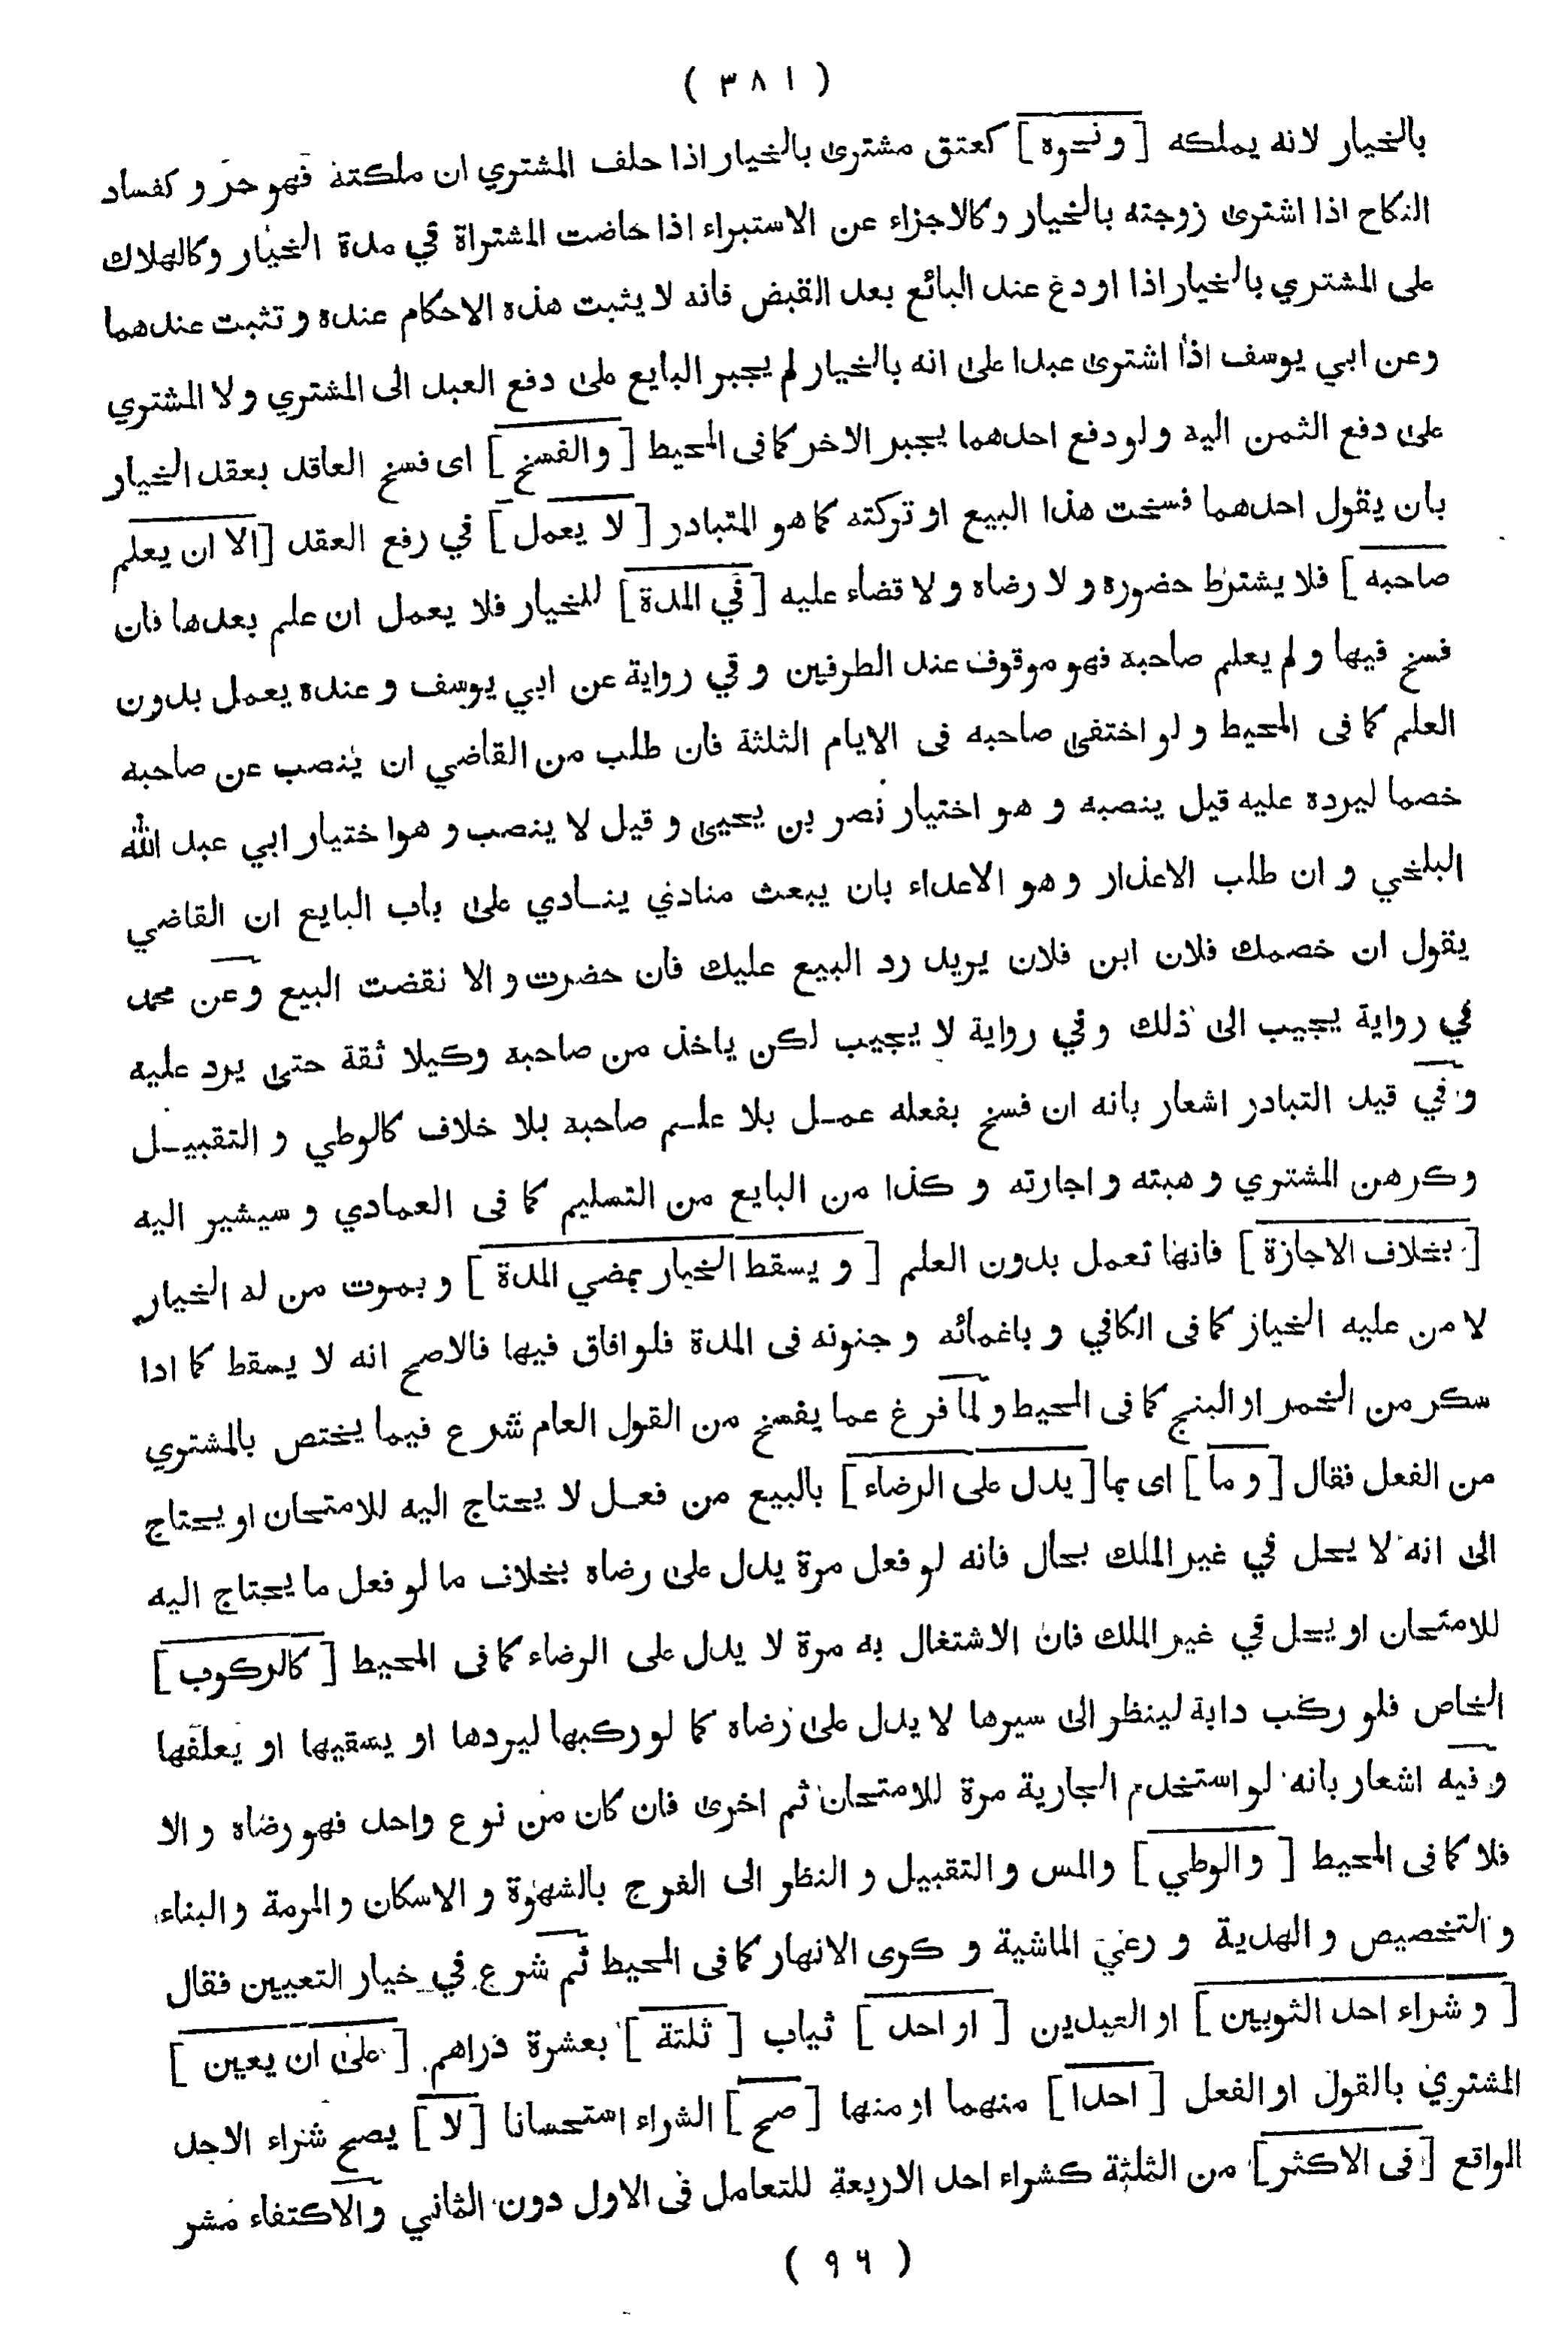 ( ٣٨١ )
بالخيار لانه يملكه [ ونحوه ] كعتق مشترى بالخيار اذا حلف المشتري ان ملكته فهو حر و كفساد
النكاح اذا اشترى زوجته بالخيار وكالاجزاء عن الاستبراء اذا حاضت المشتراة في مدة الخيار وكالهلاك
على المشتري بالخيار اذا اودع عند البائع بعد القبض فانه لا يثبت هذه الاحكام عنده و تثبت عندهما
وعن ابي يوسف اذا اشترى عبدا على انه بالخيار لم يجبر البايع على دفع العبد الى المشتري ولا المشتري
على دفع الثمن اليه و لو دفع احدهما يجبر الاخر كما فى المحيط [ والفسخ ] اى فسخ العاقد بعقد الخيار
بان يقول احدهما فسخت هذا البيع او تركته كما هو المتبادر [ لا يعمل ] في رفع العقد [ الا ان يعلم
صاحبه ] فلا يشترط حضوره و لا رضاه و لا قضاء عليه [ في المدة ] للخيار فلا يعمل ان علم بعدها فان
فسخ فيها و لم يعلم صاحبه فهو موقوف عند الطرفين و في رواية عن ابي يوسف و عنده يعمل بدون
العلم كما فى المحيط و لو اختفى صاحبه فى الايام الثلثة فان طلب من القاضي ان ينصب عن صاحبه
خصما ليرده عليه قيل ينصبه و هو اختيار نصر بن يحيى و قيل لا ينصب و هو اختيار ابي عبد الله
البلخي و ان طلب الاعذار و هو الاعداء بان يبعث منادي ينادي على باب البايع ان القاضي
يقول ان خصمك فلان ابن فلان يريد رد البيع عليك فان حضرت و الا نقضت البيع وعن محمد
في رواية يجيب الى ذلك وفي رواية لا يجيب لكن ياخذ من صاحبه وكيلا ثقة حتى يرد عليه
و في قيد التبادر اشعار بانه ان فسخ بفعله عمل بلا علم صاحبه بلا خلاف كالوطي و التقبيل
وكرهن المشتري و هبته و اجارته و كذا من البايع من التسليم كما فى العمادي و سيشير اليه
[ بخلاف الاجازة ] فانها تعمل بدون العلم [ و يسقط الخيار بمضي المدة ] و بموت من له الخيار
لا من عليه الخيار كما فى الكافي و باغمائه و جنونه فى المدة فلو افاق فيها فالاصح انه لا يسقط كما اذا
سكر من الخمر او البنج كما فى المحيط و لما فرغ عما يفسخ من القول العام شرع فيما يختص بالمشتري
من الفعل فقال [ و ما ] اى بما [ يدل على الرضاء ] بالبيع من فعل لا يحتاج اليه للامتحان او يحتاج
الى انه لا يحل في غير الملك بحال فانه لو فعل مرة يدل على رضاه بخلاف ما لو فعل ما يحتاج اليه
للامتحان او يحل في غير الملك فان الاشتغال به مرة لا يدل على الرضاء كما فى المحيط [ كالركوب ]
الخاص فلو ركب دابة لينظر الى سيرها لا يدل على رضاه كما لو ركبها ليردها او يسقيها او يعلفها
و فيه اشعار بانه لو استخدم الجارية مرة للامتحان ثم اخرى فان كان من نوع واحد فهو رضاه و الا
فلا كما فى المحيط [ والوطي ] والمس والتقبيل و النظر الى الفرج بالشهوة و الاسكان و المرمة والبناء
و التخصيص و الهدية و رعي الماشية و كرى الانهار كما فى المحيط ثم شرع في خيار التعيين فقال
[ و شراء احد الثوبين ] او العبدين [ او احد ] ثياب [ ثلثة ] بعشرة دراهم [ على ان يعين ]
المشتري بالقول او الفعل [ احدا ] منهما او منها [ صح ] الشراء استحسانا [ لا ] يصح شراء الاحد
الواقع [ فى الاكثر ] من الثلثة كشراء احد الاربعة للتعامل فى الاول دون الثاني والاكتفاء مشر
( ٩٦ )